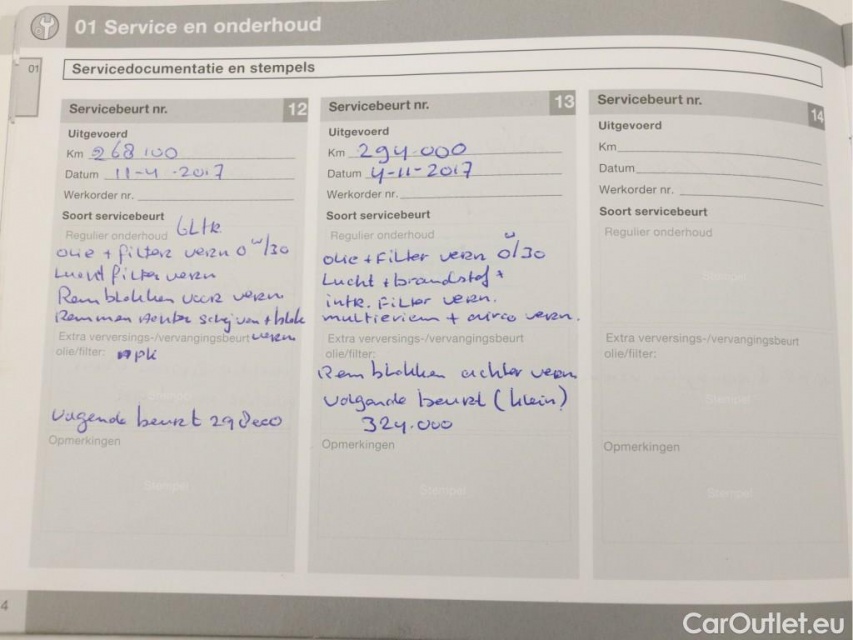 01 Service en onderhoud
01
Servicedocumentatie en stempels
Servicebeurt nr. 12
Uitgevoerd
Km 268100
Datum 11-4-2017
Werkorder nr.
Soort servicebeurt
Regulier onderhoud 6Ltr
olie + filter vern 0w/30
Lucht filter vern
Remblokken voor vern
Remmen achter schijven + blok
vern
Extra verversings-/vervangingsbeurt
olie/filter: apk
Stempel
volgende beurt 298000
Opmerkingen
Stempel
Servicebeurt nr. 13
Uitgevoerd
Km 294.000
Datum 4-11-2017
Werkorder nr.
Soort servicebeurt
Regulier onderhoud
olie + Filter vern 0w/30
Lucht + brandstof +
intr. Filter vern.
multieriem + airco vern.
Extra verversings-/vervangingsbeurt
olie/filter:
Remblokken achter vern
volgende beurt (klein)
324.000
Opmerkingen
Stempel
Servicebeurt nr. 14
Uitgevoerd
Km
Datum
Werkorder nr.
Soort servicebeurt
Regulier onderhoud
Stempel
Extra verversings-/vervangingsbeurt
olie/filter:
Stempel
Opmerkingen
Stempel
4
CarOutlet.eu